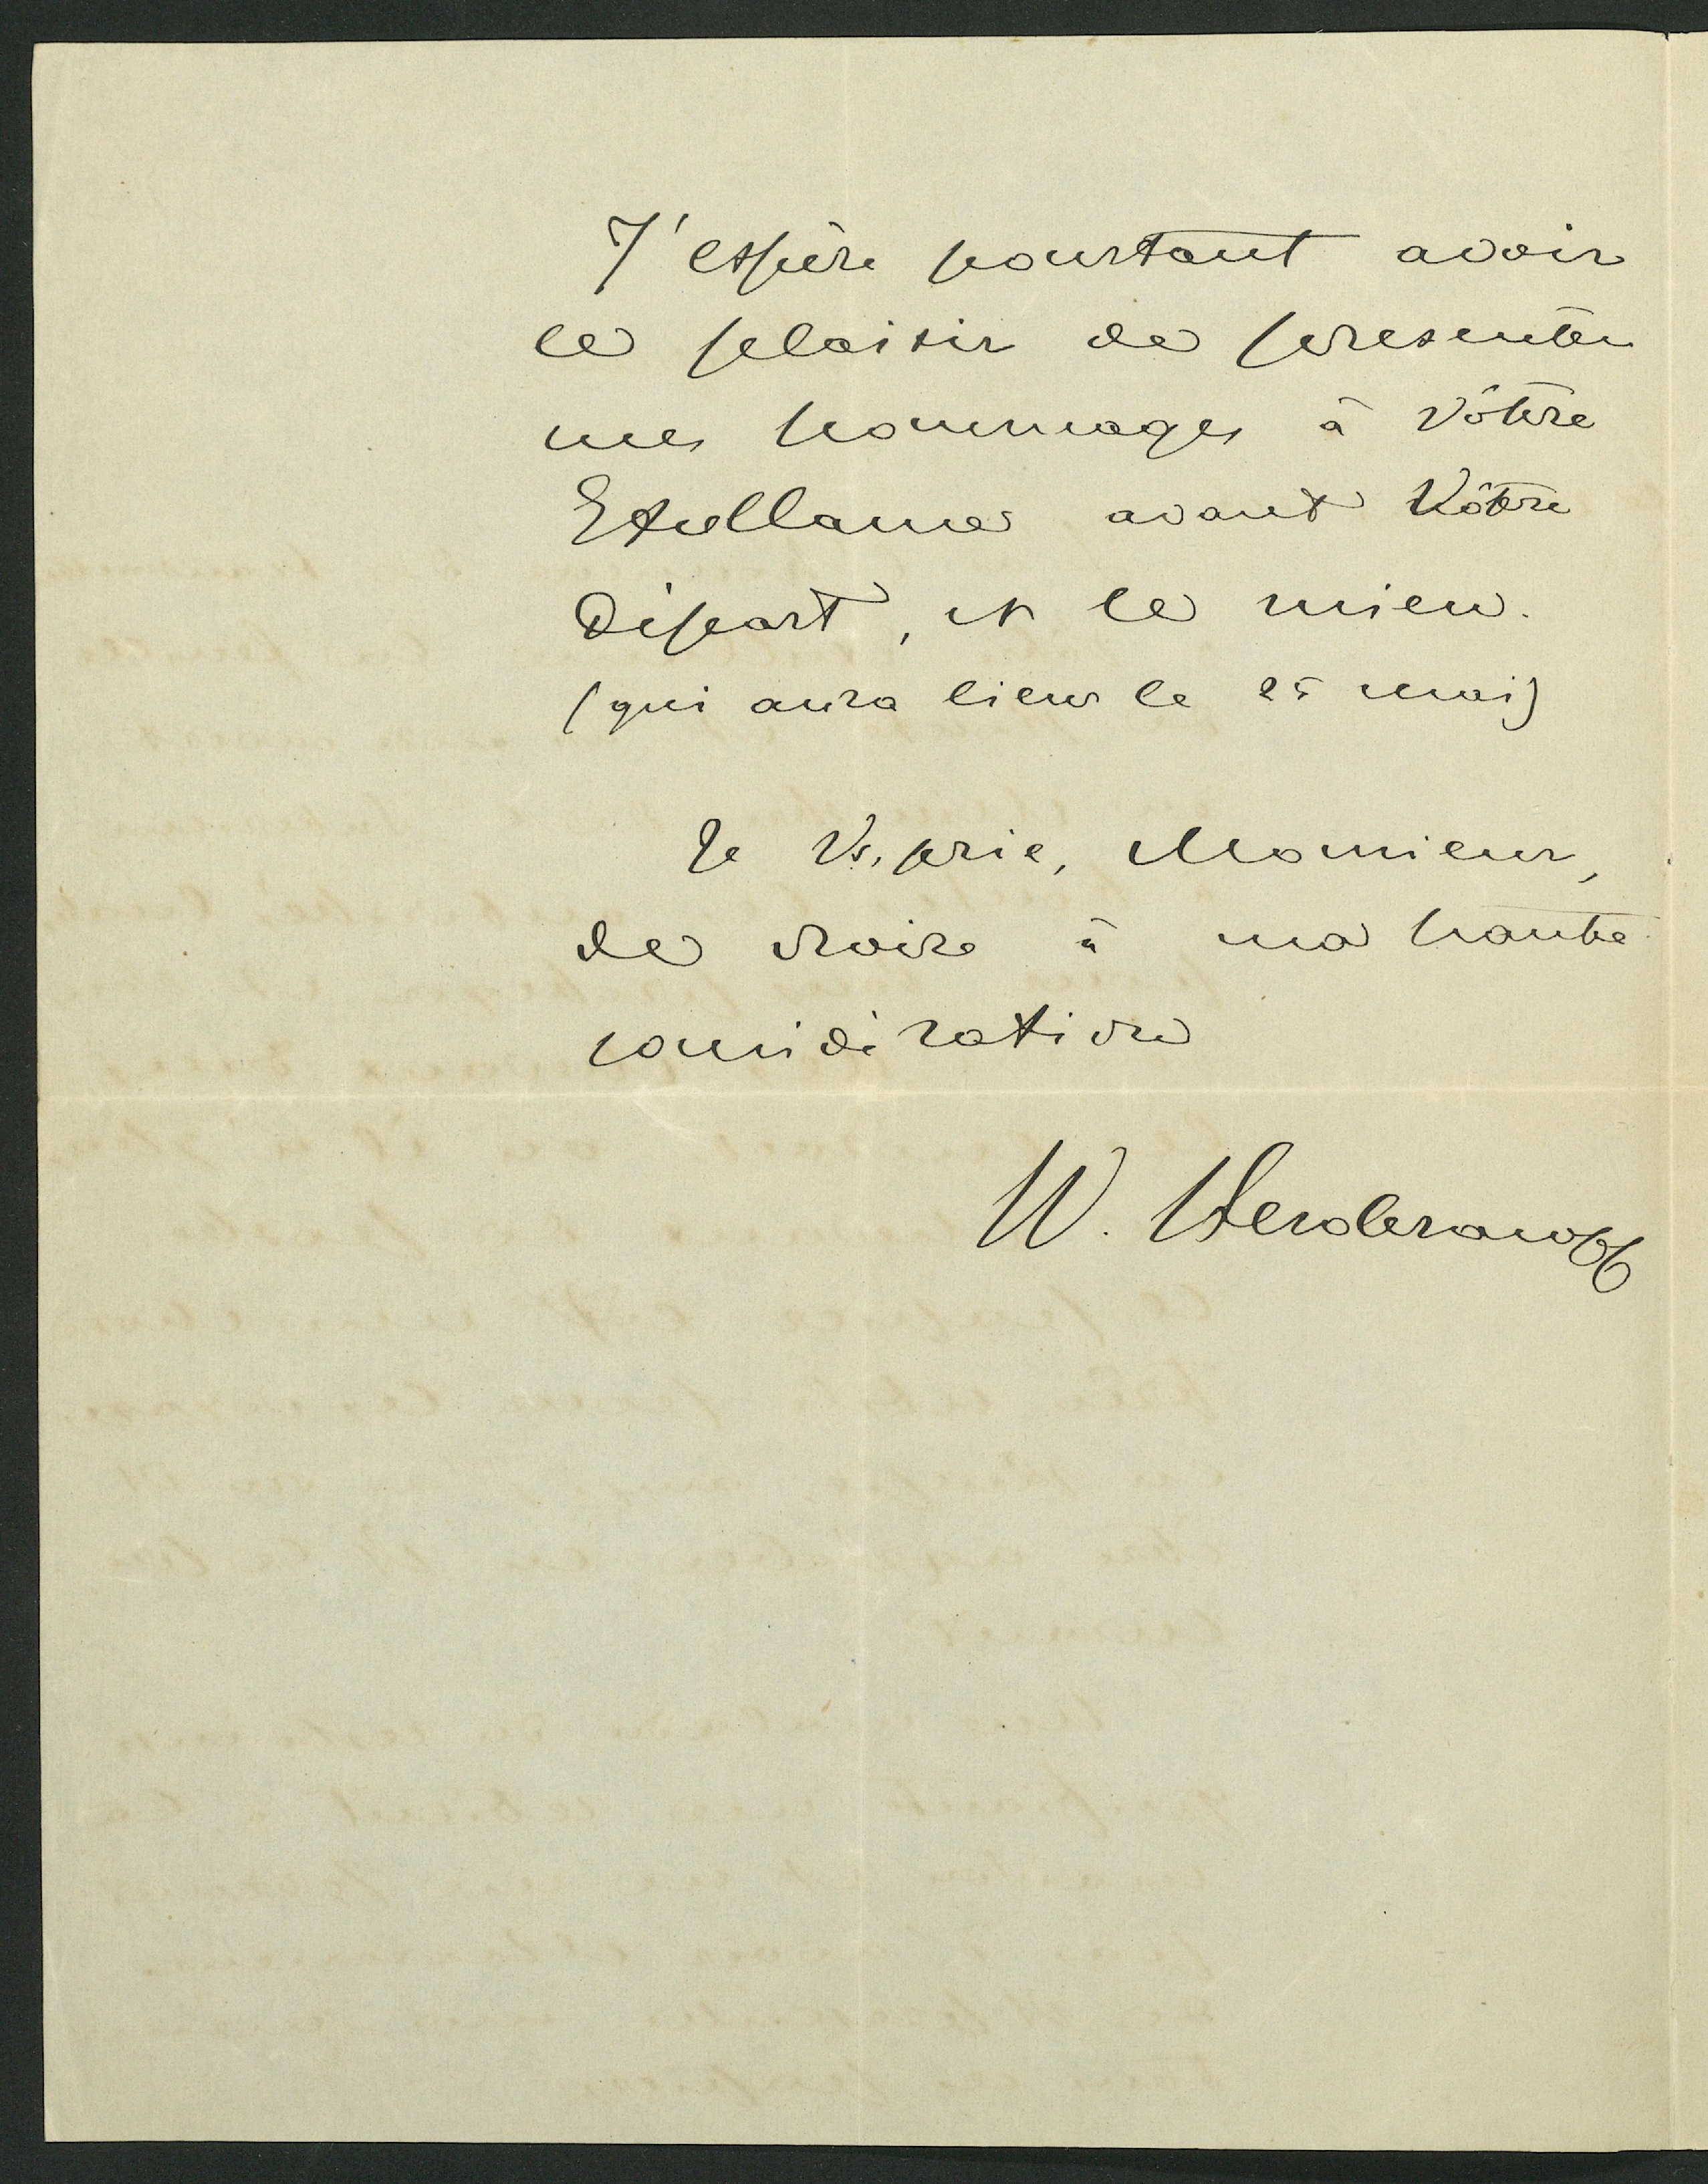 J'espère pourtant avoir
le plaisir de presenter
mes hommages à Vôtre
Excellance avant Vôtre
Départ, et le mien.
(qui aura lieu le 25 mai)
Je Vs. prie, Monsieur,
de croire à ma haute
considération
W.